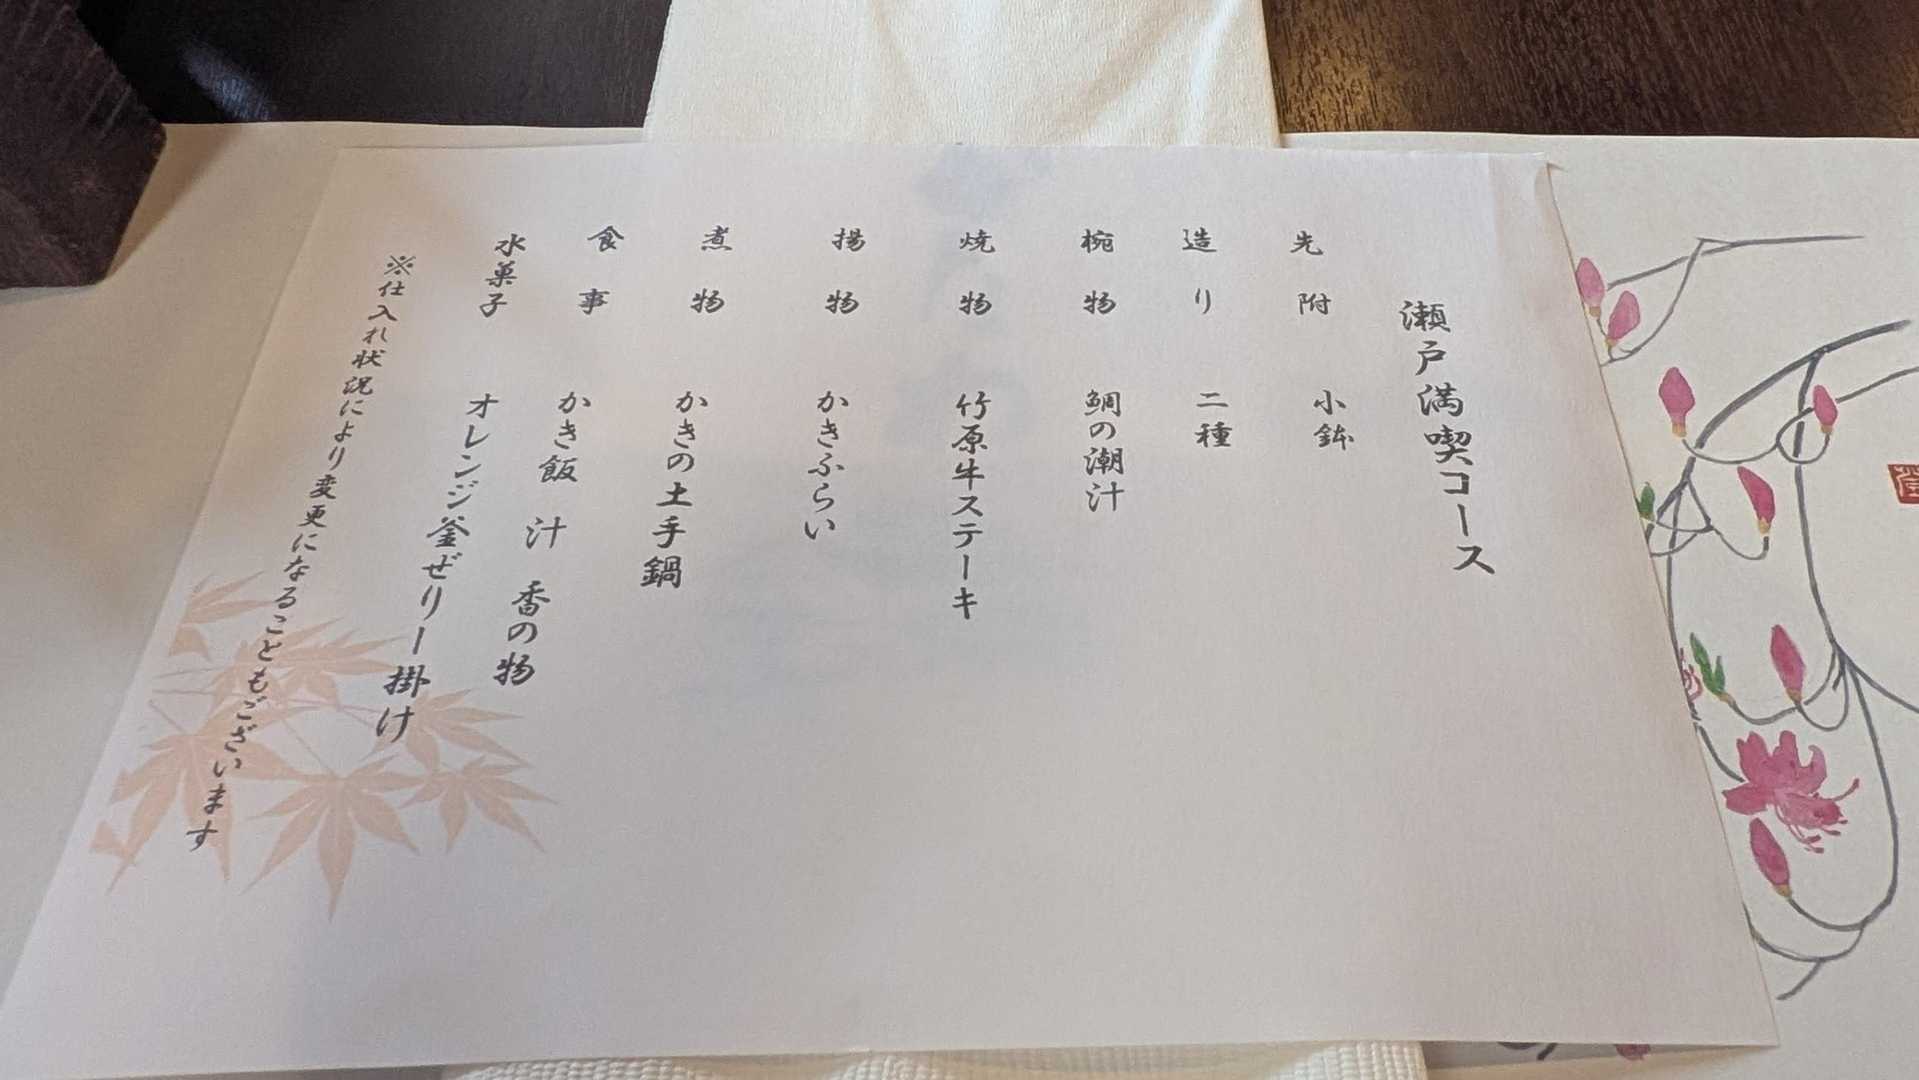 瀬戸満喫コース
先附 小鉢
造り 二種
椀物 鯛の潮汁
焼物 竹原牛ステーキ
揚物 かきふらい
煮物 かきの土手鍋
食事 かき飯 汁 香の物
水菓子 オレンジ釜ぜりー掛け
※仕入れ状況により変更になることもございます